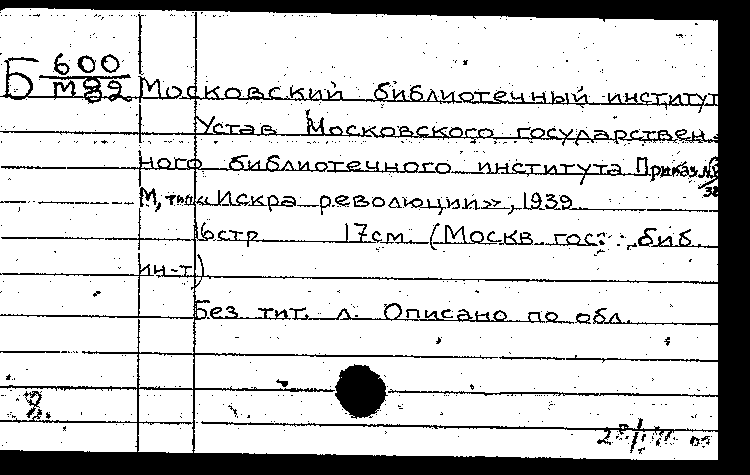 Б 600
М82 Московский библиотечный институт
Устав Московского государствен-
ного библиотечного института Приказ №
М, тип. «Искра революции», 1939
16 стр 17см. (Москв. гос. биб.
ин-т)
Без тит. л. Описано по обл.
8.